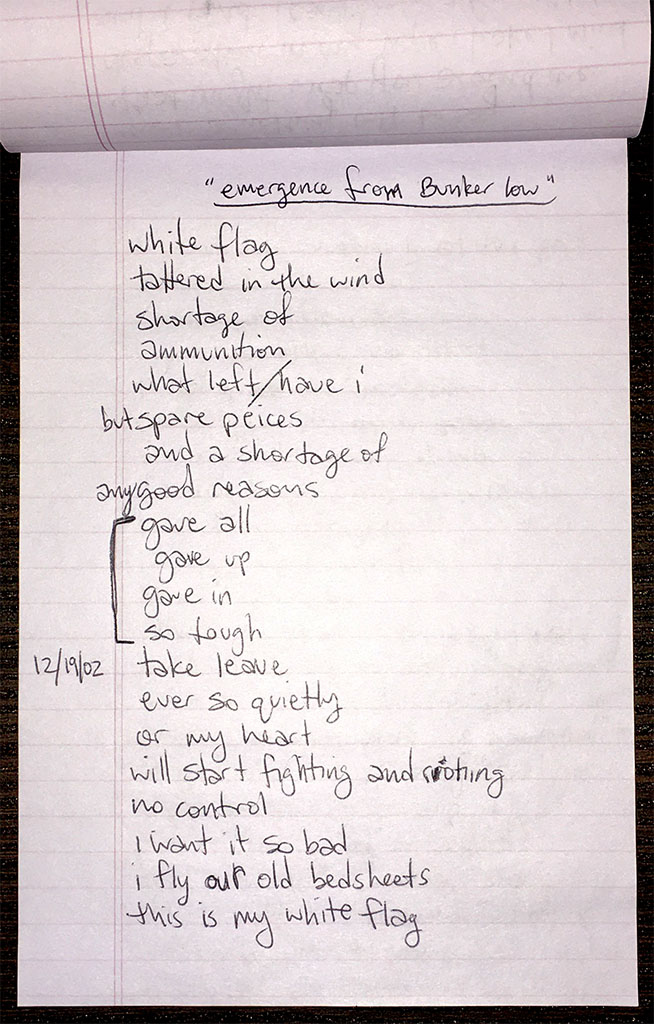 "emergence from Bunker low"
white flag
tattered in the wind
shortage of
ammunition
what left/have i
but spare peices
and a shortage of
any good reasons
gave all
gave up
gave in
so tough
12/19/02 take leave
ever so quietly
or my heart
will start fighting and rioting
no control
i want it so bad
i fly our old bedsheets
this is my white flag